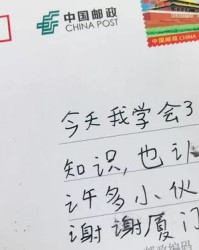 中国邮政
CHINA POST
今天我学会了
知识,也认
许多小伙
谢谢厦门
邮政编码